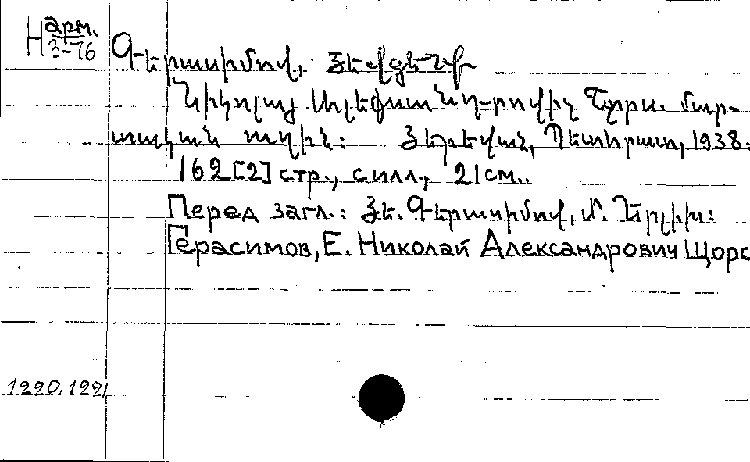 Н арм.
3-76
Գերասիմով, Յեվգենի
Նիկոլայ Ալեքսանդրովիչ Շչորս. մար-
տական ուղին: Յերեվան, Պետհրատ, 1938.
162 [2] стр., с илл., 21 см..
Перед загл.: Յե. Գերասիմով, Մ.
Герасимов, Е. Николай Александрович Щорс
1220, 122